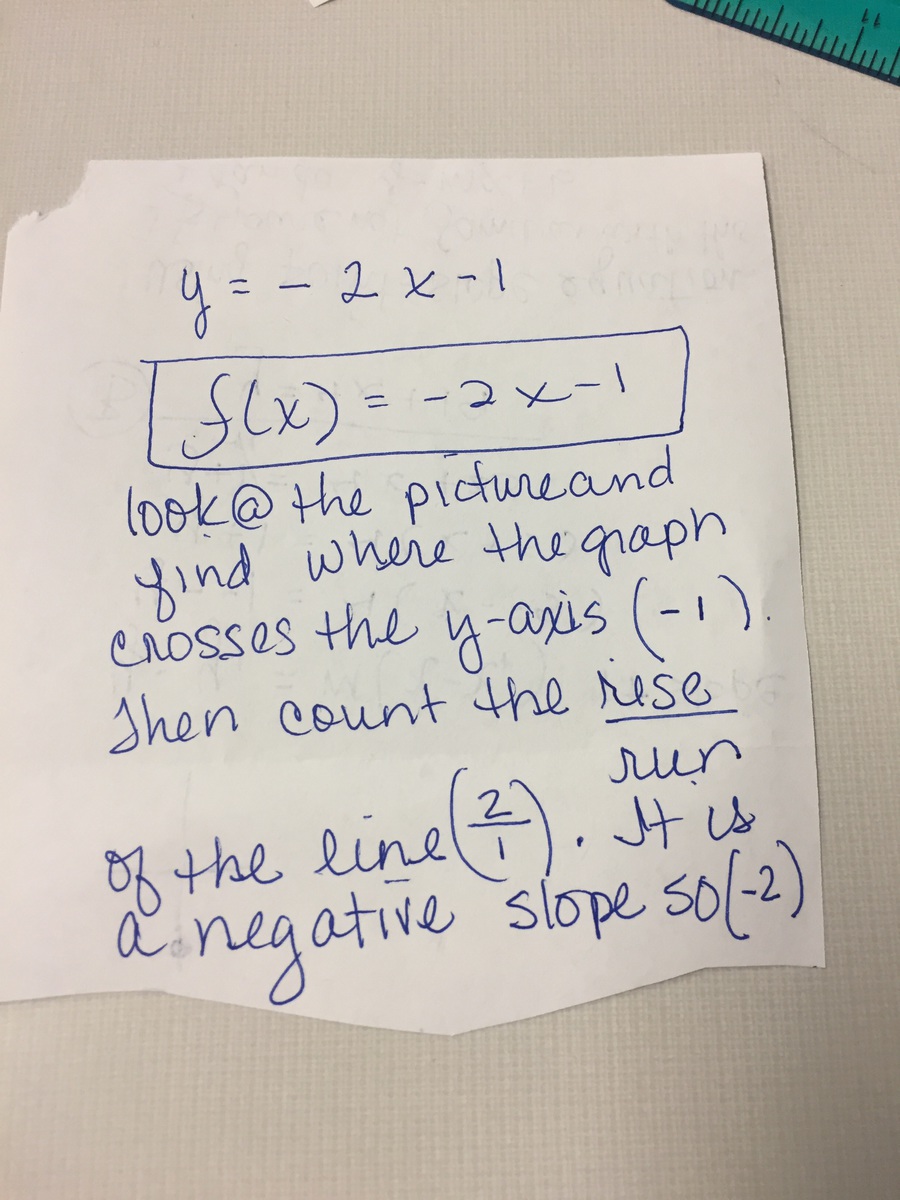 y = - 2 x - 1
f(x) = - 2 x - 1
look @ the picture and
find where the graph
crosses the y-axis (-1).
Then count the rise
run
of the line (2/1). It is
a negative slope so (-2)
11